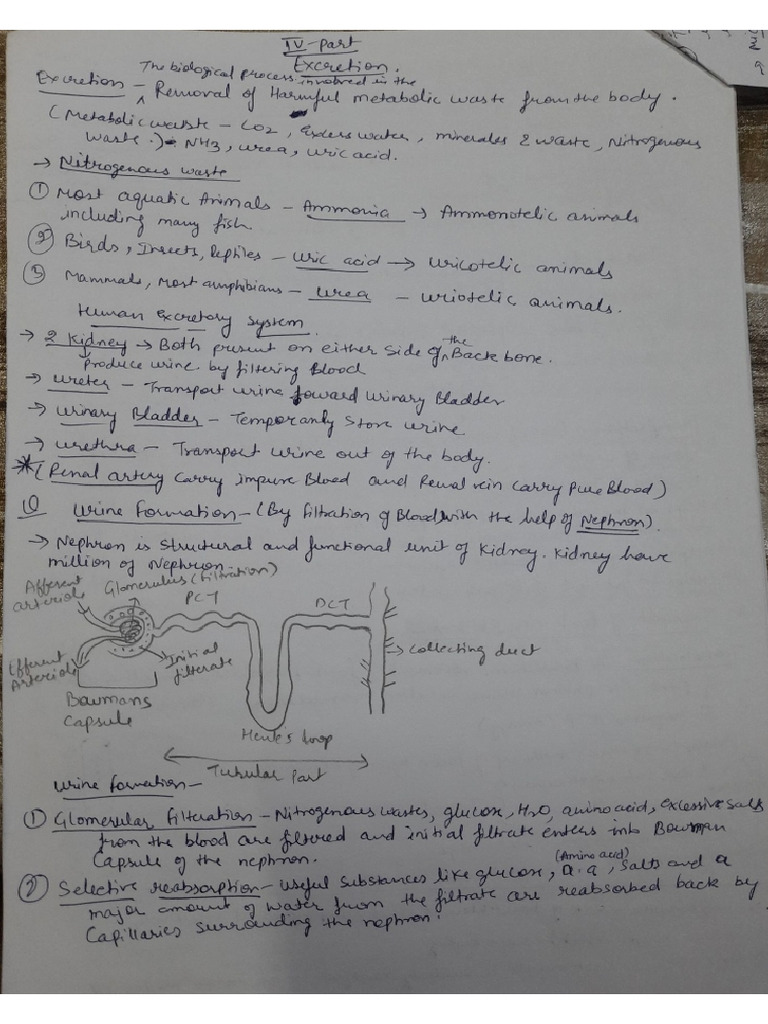 IV-part
Excretion.
The biological process involved in the
Excretion - Removal of Harmful metabolic waste from the body.
(Metabolic waiste - CO2, Excess water, minerales & waste, Nitrogenous
waste.) - NH3, urea, uric acid.
→ Nitrogenous waste
① Most aquatic Animals - Ammonia → Ammonotelic animals
including many fish.
② Birds, Insects, Reptiles - uric acid → Uricotelic animals
③ Mammals, Most amphibians - urea - uriotelic animals.
Human Excretory System
→ 2 Kidney → Both present on either side of the Back bone.
Produce urine by filtering Blood
→ ureter - Transport urine toward Urinary Bladder
→ urinary Bladder - Temporarily store urine
→ urethra - Transport urine out of the body.
* (Renal artery carry impure Blood and Renal vein carry Pure Blood)
Q Urine Formation - (By filtration of Blood with the help of Nephron).
→ Nephron is structural and functional unit of Kidney. Kidney have
million of Nephron
Afferent
arteriole
Glomerulus (filtration)
PCT
DCT
→ Collecting duct
Efferent
Arteriole
Initial
filterate
Bowmans
Capsule
Henle's loop
Tubular Part
Urine formation -
① Glomerular filteration - Nitrogenous wastes, glucose, H2O, amino acid, excessive salts
from the blood are filtered and initial filtrate enters into Bowman
Capsule of the nephron.
② Selective reabsorption - useful substances like glucose, a.a, (Amino acid) salts and a
major amount of water from the filtrate are reabsorbed back by
Capillaries surrounding the nephron.